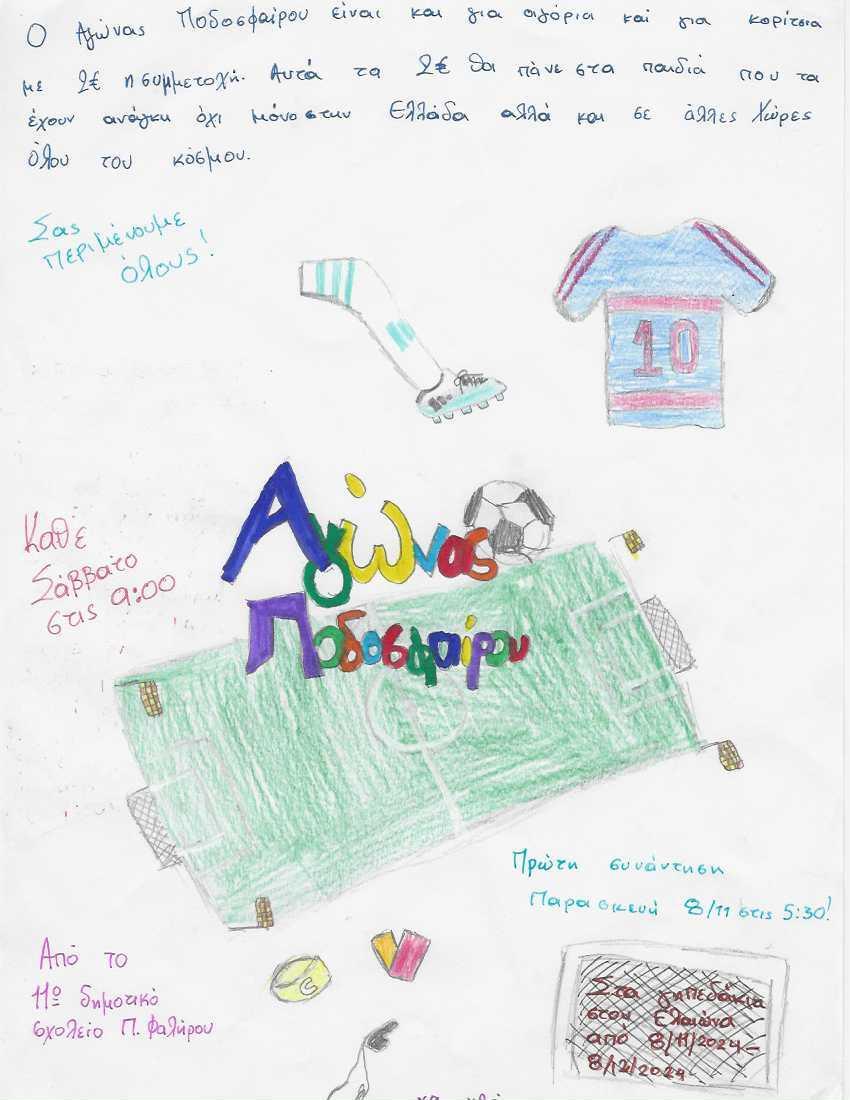 Ο Αγώνας Ποδοσφαίρου είναι και για αγόρια και για κορίτσια
με 2€ η συμμετοχή. Αυτά τα 2€ θα πάνε στα παιδιά που τα
έχουν ανάγκη όχι μόνο στην Ελλάδα αλλά και σε άλλες χώρες
όλου του κόσμου.
Σας
περιμένουμε
όλους!
10
Αγώνας
Ποδοσφαίρου
Κάθε
Σάββατο
στις 9:00
Πρώτη συνάντηση
Παρασκευή 8/11 στις 5:30!
Από το
11º δημοτικό
σχολείο Π. Φαλήρου
Στα γηπεδάκια
στον Ελαιώνα
από 8/11/2024-
8/12/2024